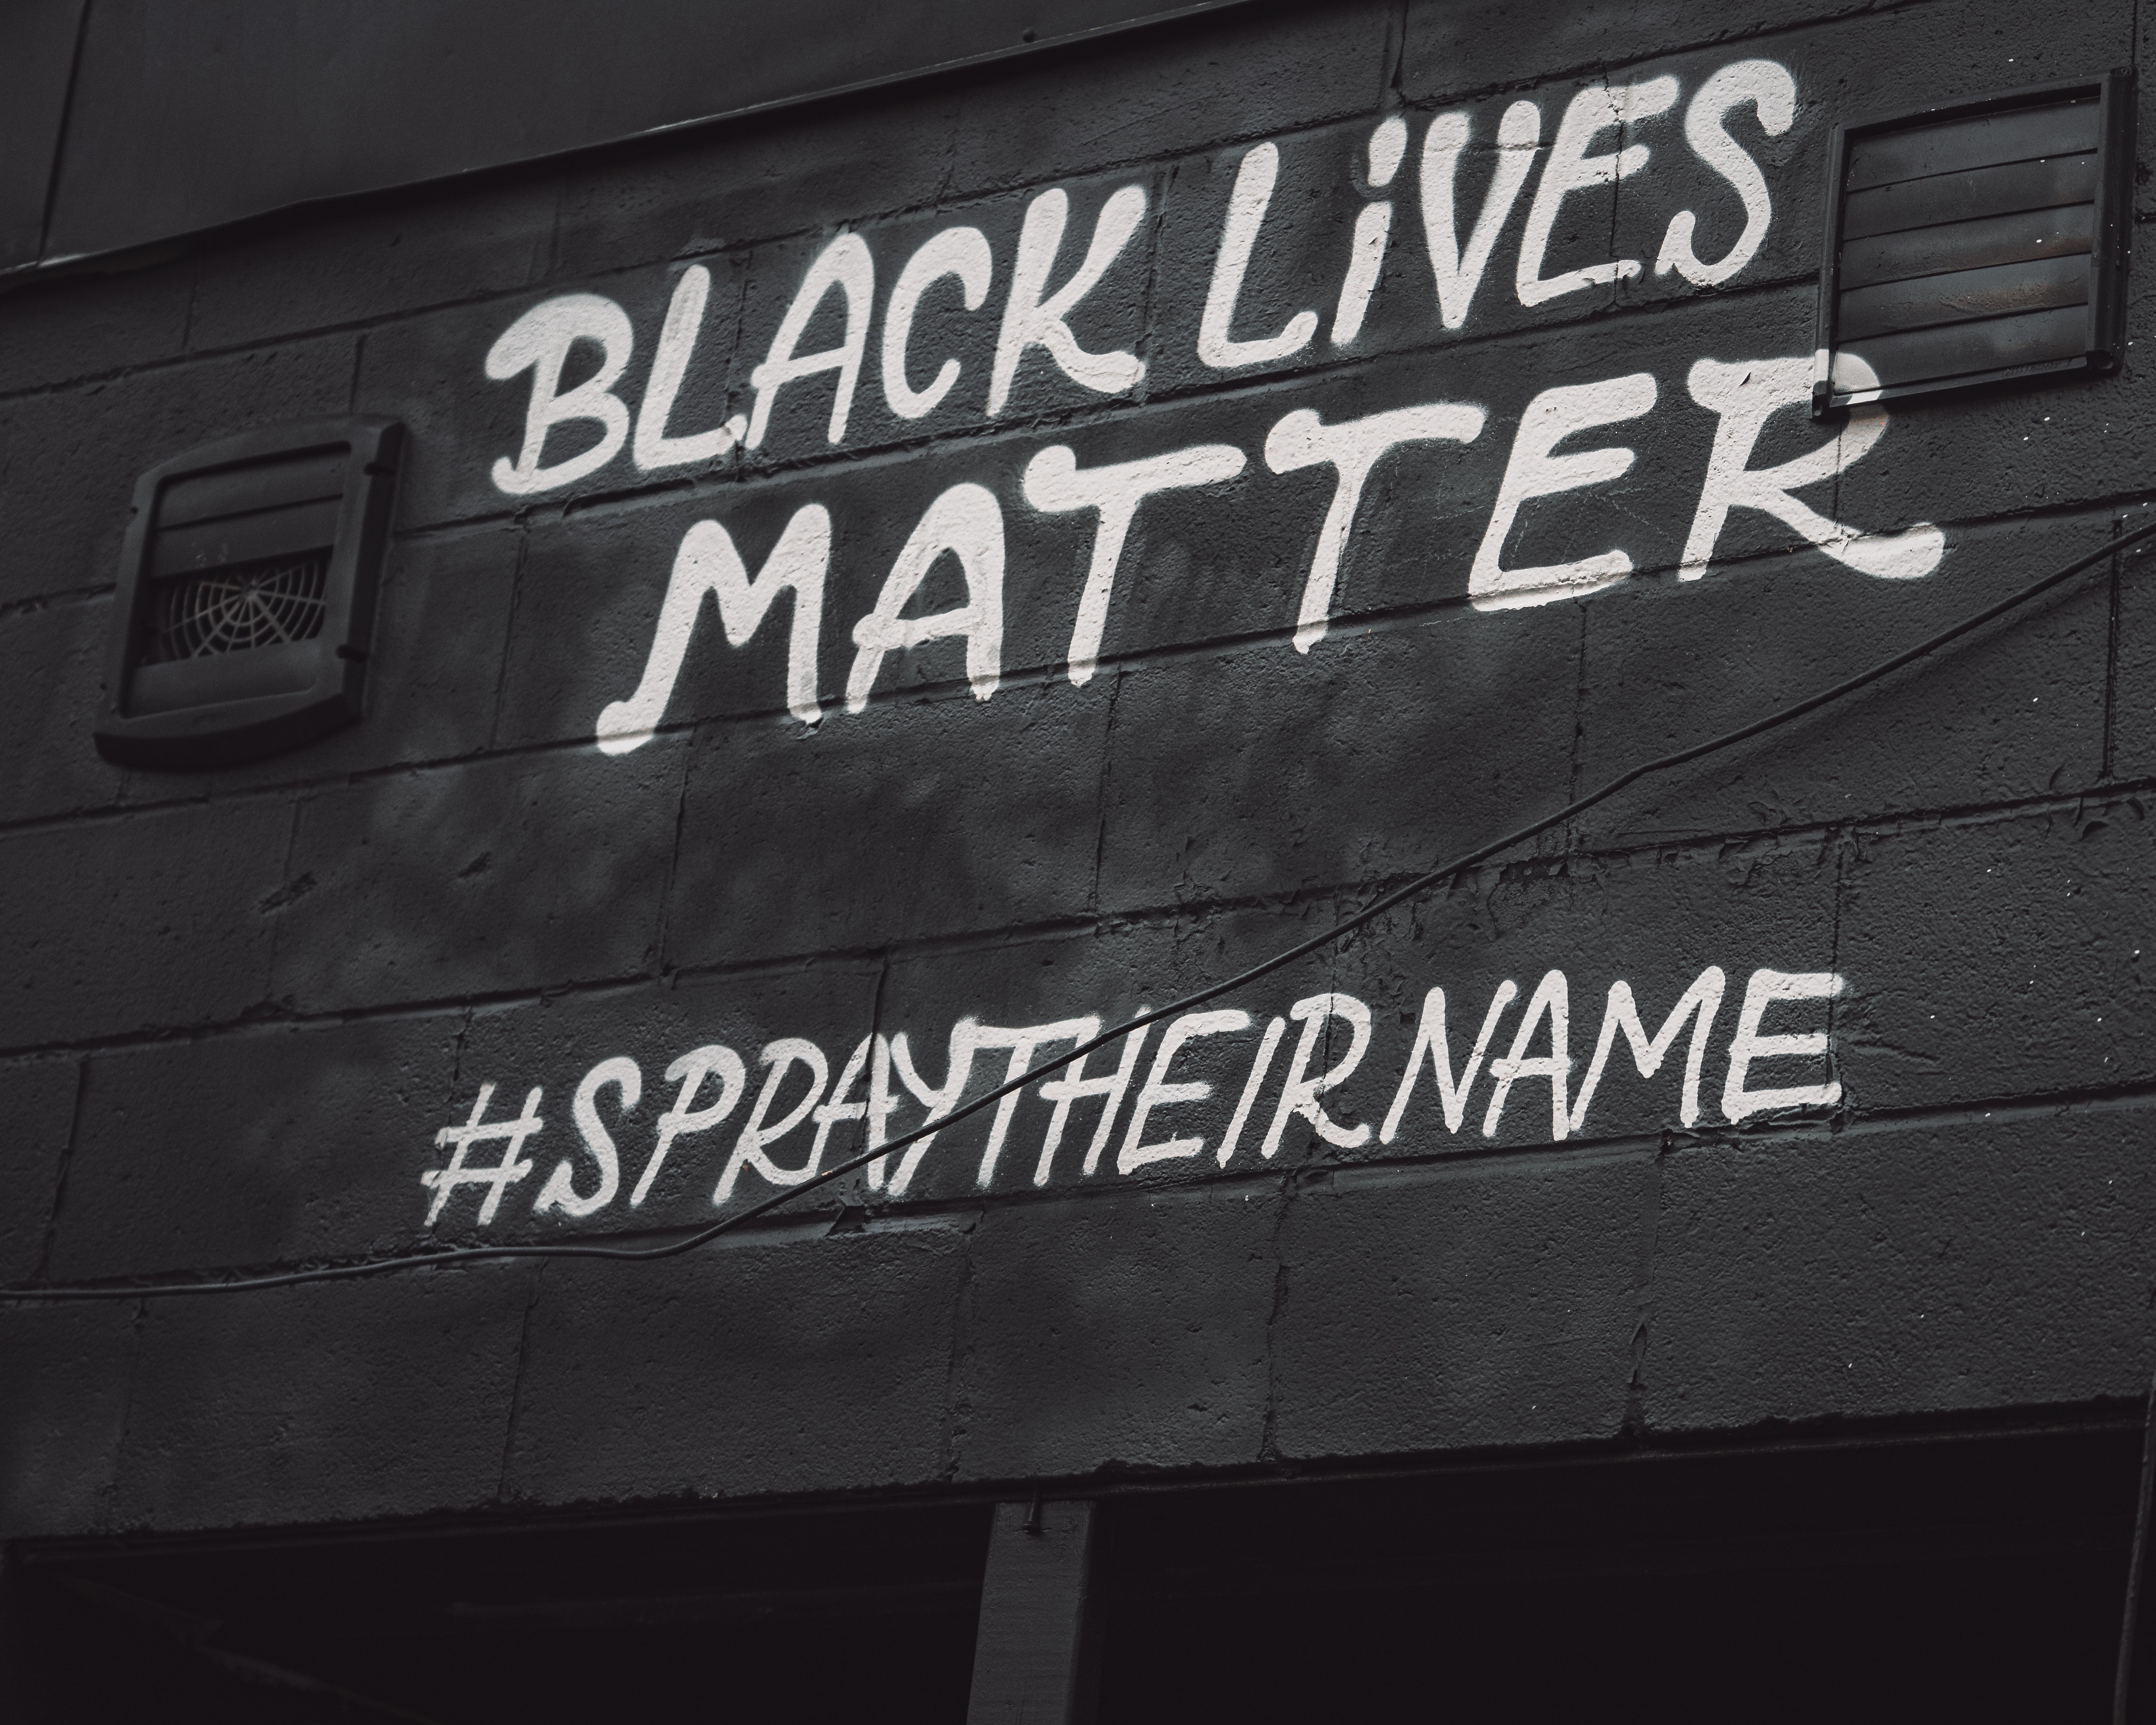 BLACK LiVES
MATTER
#SPRAYTHEIRNAME